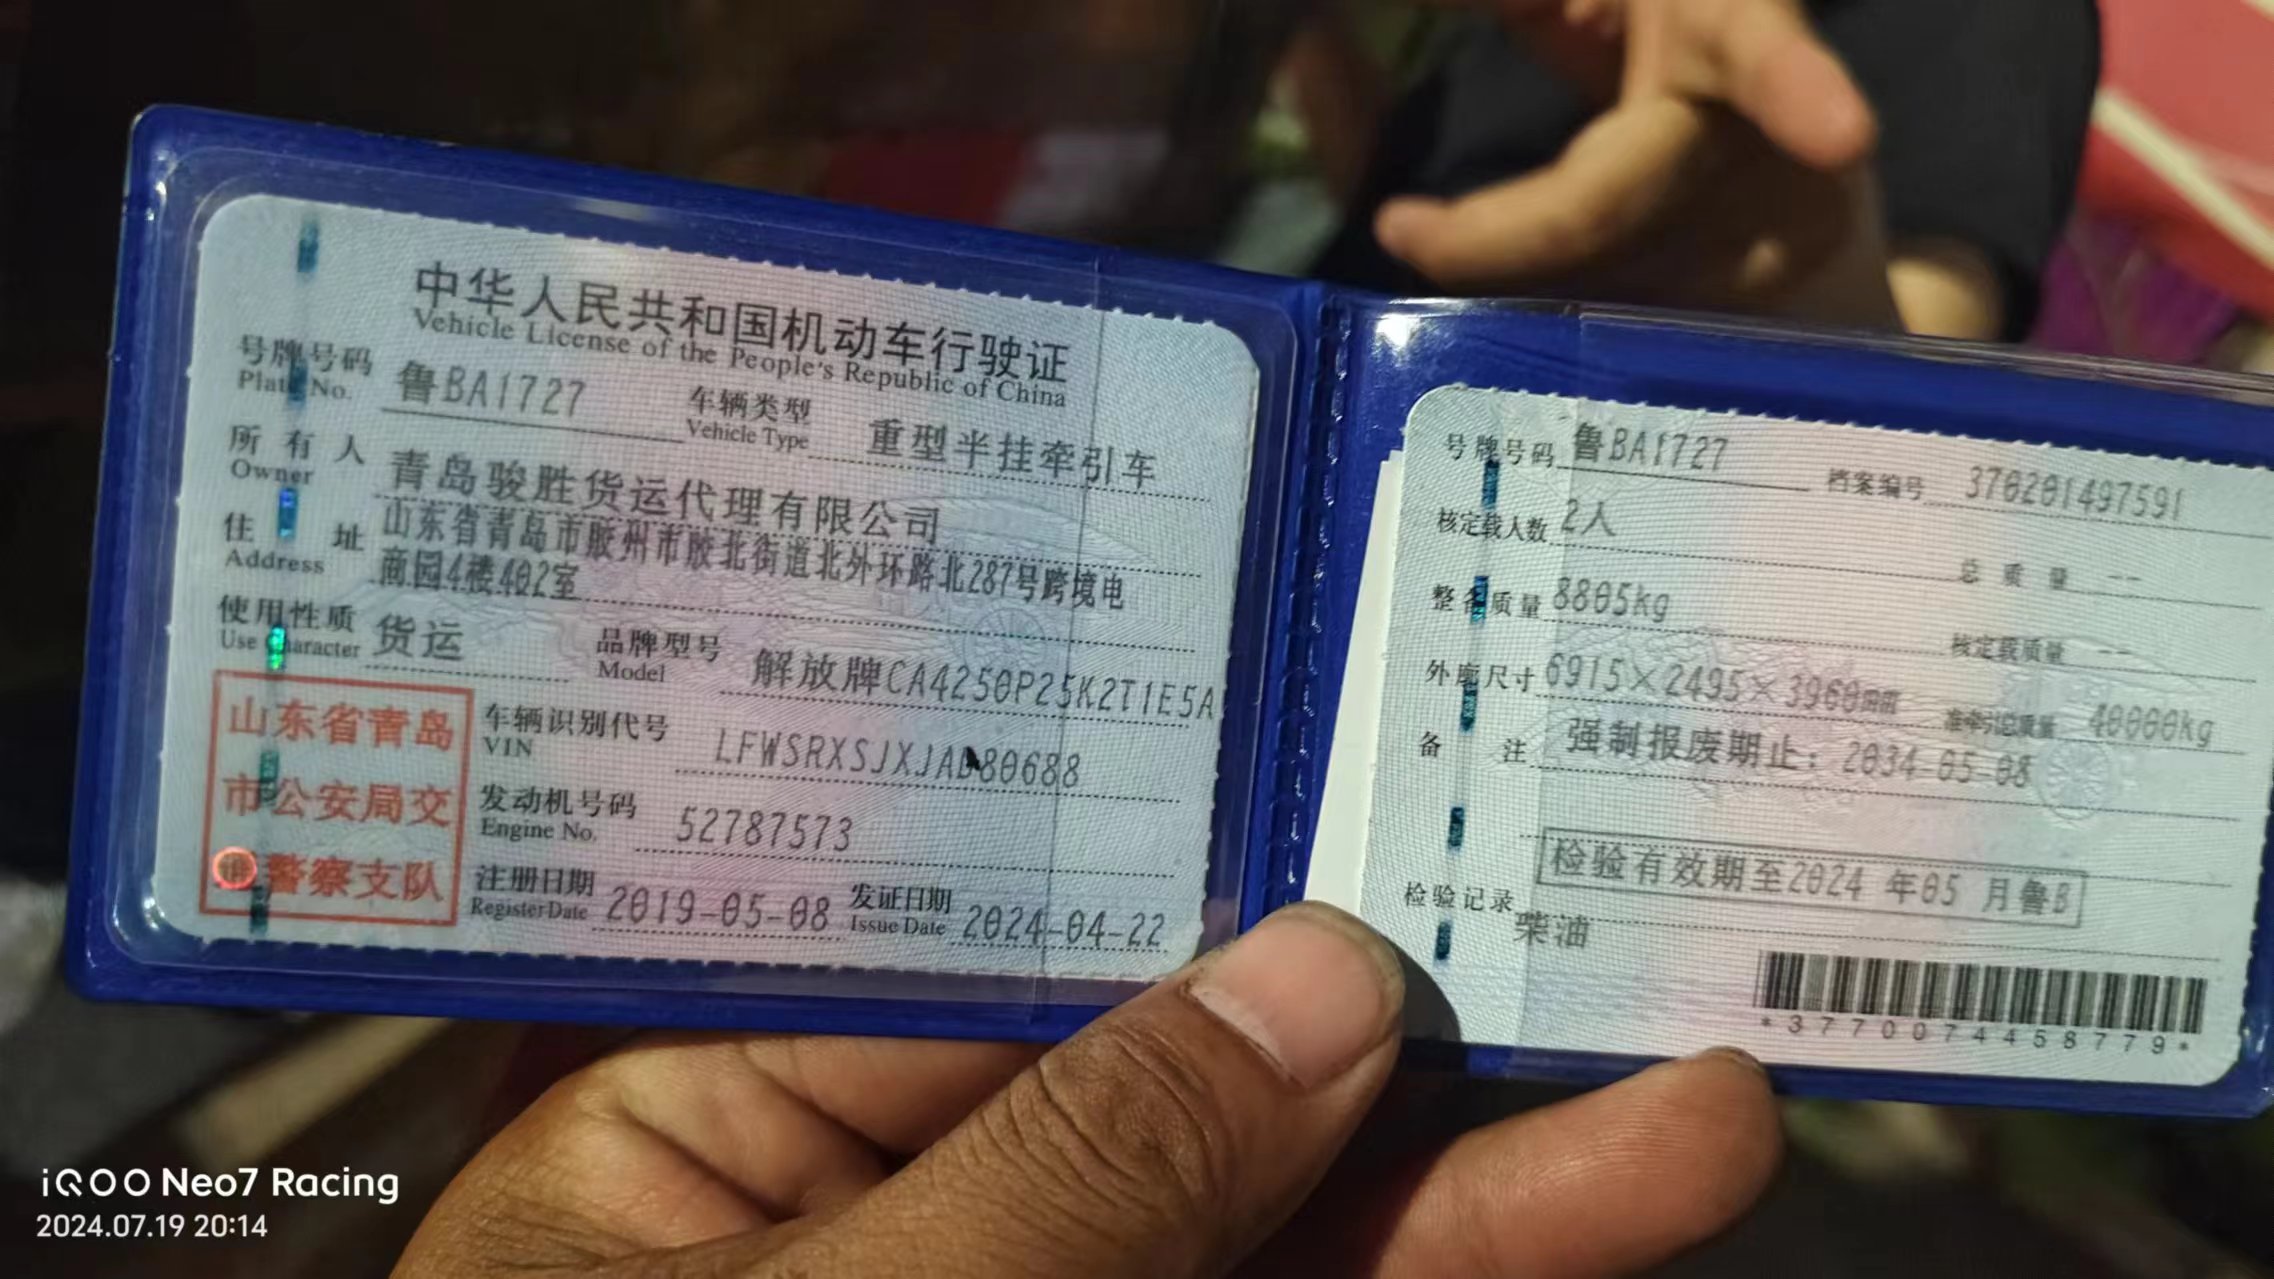 中华人民共和国机动车行驶证
Vehicle License of the People's Republic of China
号牌号码 鲁BA1727 车辆类型 重型半挂牵引车
Plate No. Vehicle Type
所有人 青岛骏胜货运代理有限公司
Owner
住址 山东省青岛市胶州市胶北街道北外环路北287号跨境电
Address 商园4楼402室
使用性质 货运 品牌型号 解放牌CA4250P25K2T1E5A
Use Character Model
山东省青岛
市公安局交
警察支队
车辆识别代号 LFWSRXSJXJAD80688
VIN
发动机号码 52787573
Engine No.
注册日期 2019-05-08 发证日期 2024-04-22
Register Date Issue Date
号牌号码 鲁BA1727 档案编号 370201497591
核定载人数 2人 总质量 --
整备质量 8805kg 核定载质量 --
外廓尺寸 6915×2495×3960mm 准牵引总质量 40000kg
备注 强制报废期止：2034-05-08
检验有效期至2024年05月鲁B
检验记录
柴油
*3770074458779*
iQOO Neo7 Racing
2024.07.19 20:14